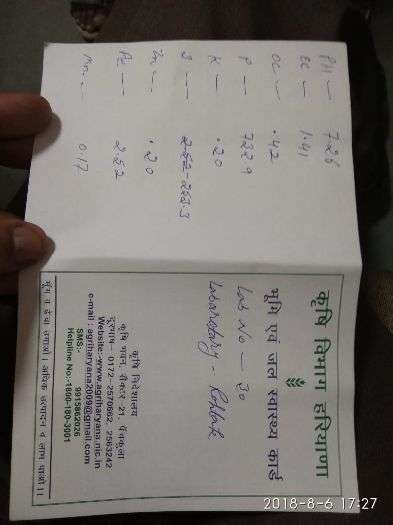 PH — 7.26
EC — 1.41
OC — .42
P — 722.9
K — .20
S —
Zn — .20
Fe — 2.52
Mn — 0.17
कृषि विभाग हरियाणा
भूमि एवं जल स्वास्थ्य कार्ड
Lab No — 30
Laboratory - Rohtak
कृषि निदेशालय
कृषि भवन, सैक्टर-21, पंचकूला
दूरभाष:- 0172-2570662, 2563242
Website:-www.agriharyana.nic.in
e-mail : agriharyana2009@gmail.com
SMS:- 9915862026
Helpline No:-1800-180-3001
अधिक उत्पादन व लाभ पाओ।।
2018-8-6 17:27